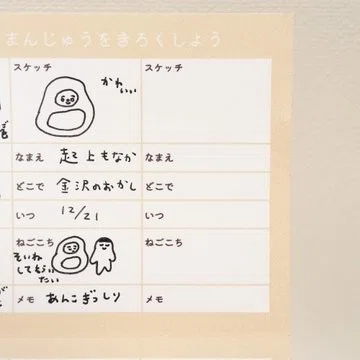 まんじゅうをきろくしよう
スケッチ
かわいい
なまえ 起き上もなか
どこで 金沢のおかし
いつ 12/21
ねごこち
そいね
してもらい
たい
メモ あんこぎっしり
スケッチ
なまえ
どこで
いつ
ねごこち
メモ